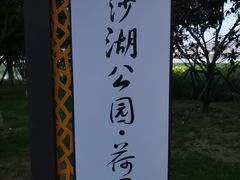 沙湖公园·荷